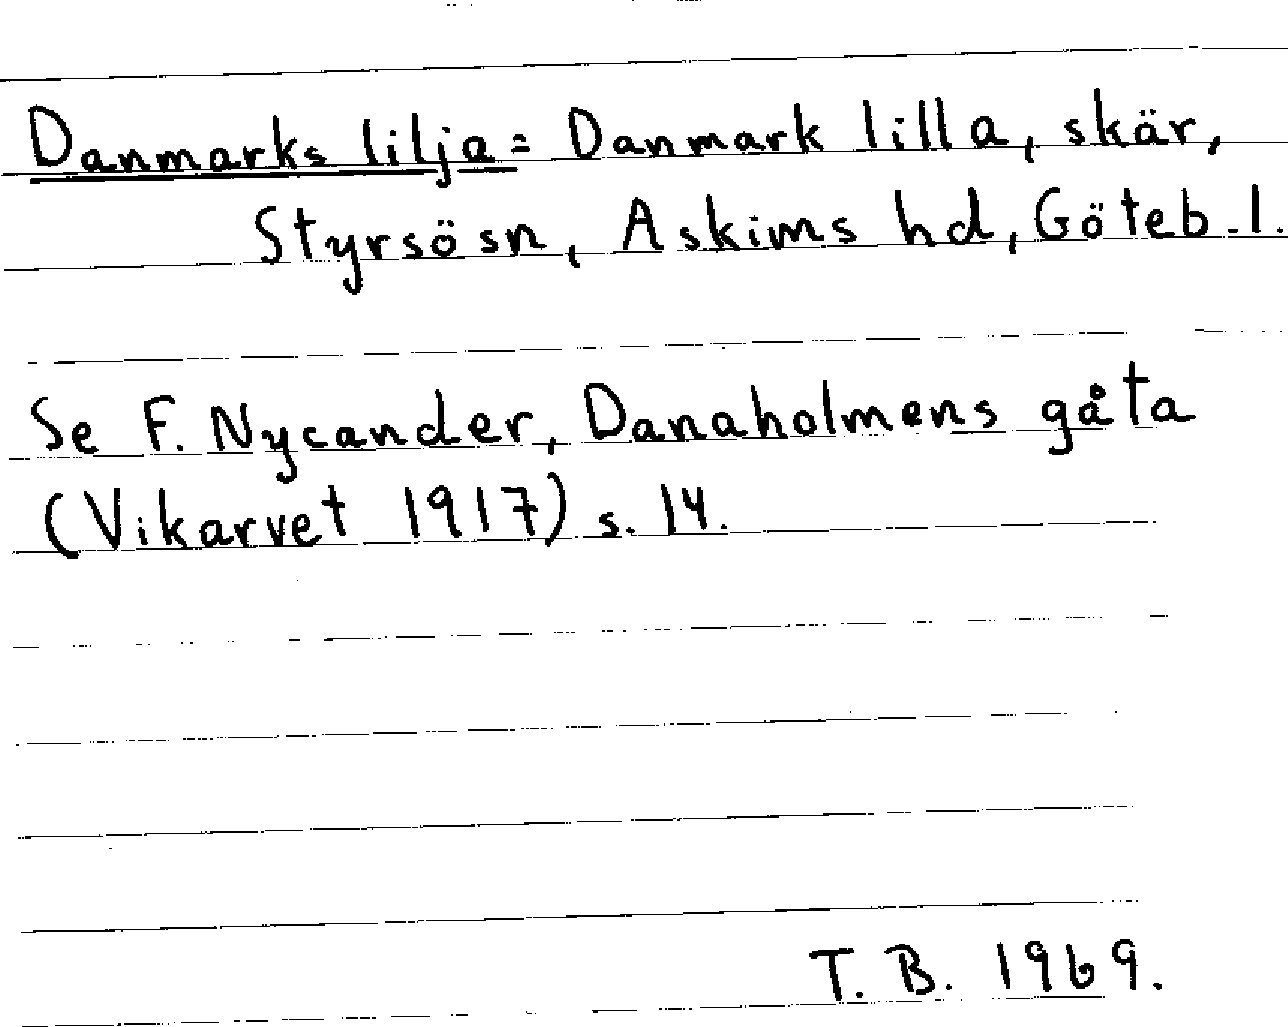 Danmarks lilja = Danmark lilla, skär,
Styrsösn, Askims hd, Göteb. l.
Se F. Nycander, Danaholmens gåta
(Vikarvet 1917) s. 14.
T. B. 1969.